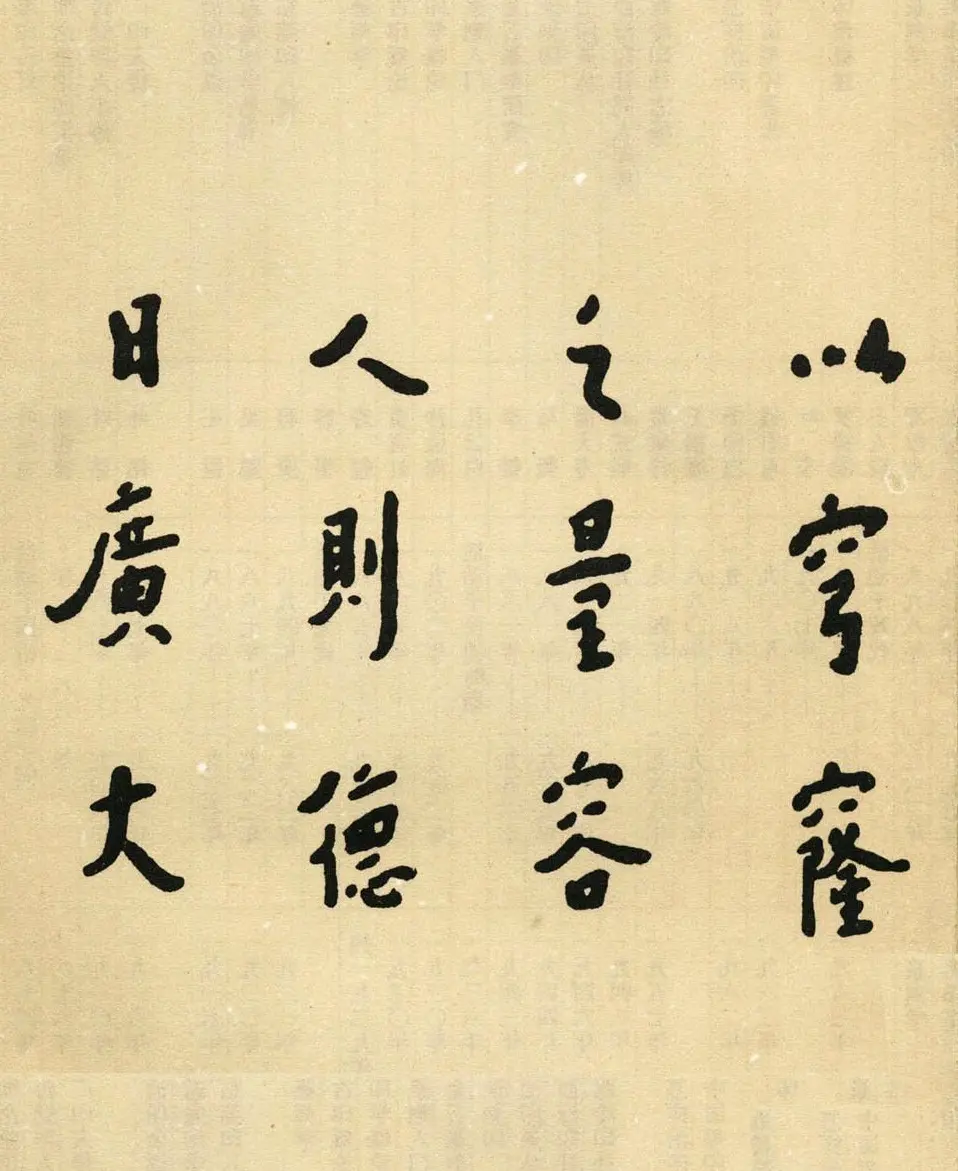 以穹窿
之量容
人則德
日廣大